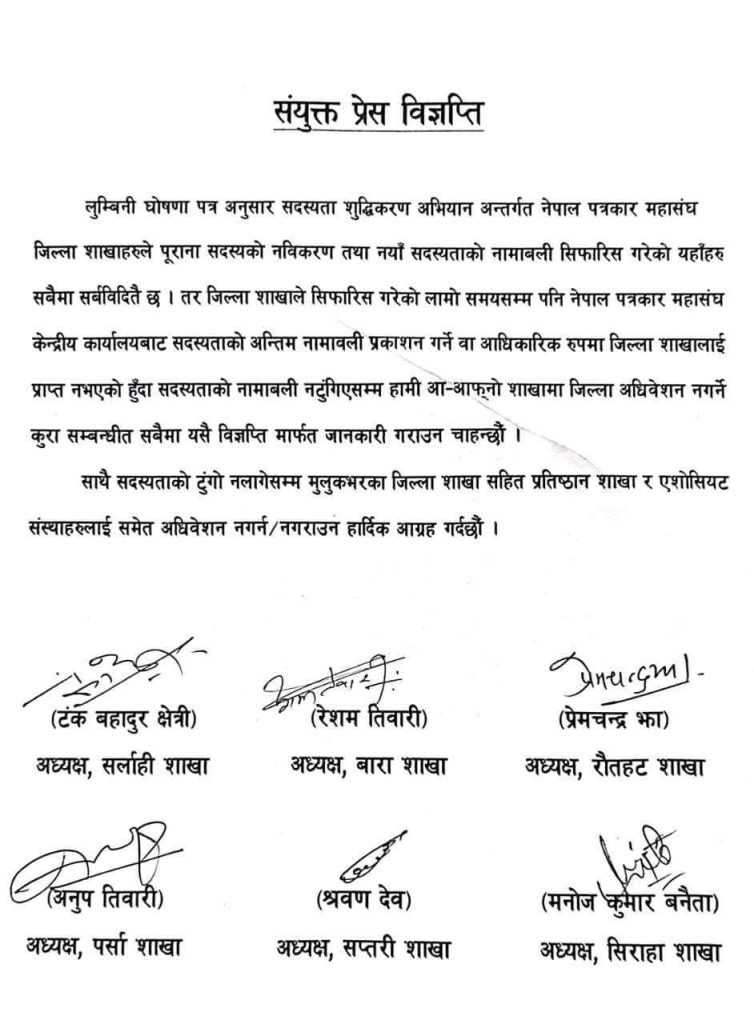 संयुक्त प्रेस विज्ञप्ति
लुम्बिनी घोषणा पत्र अनुसार सदस्यता शुद्धिकरण अभियान अन्तर्गत नेपाल पत्रकार महासंघ
जिल्ला शाखाहरुले पूराना सदस्यको नविकरण तथा नयाँ सदस्यताको नामाबली सिफारिस गरेको यहाँहरु
सबैमा सर्बविदितै छ । तर जिल्ला शाखाले सिफारिस गरेको लामो समयसम्म पनि नेपाल पत्रकार महासंघ
केन्द्रीय कार्यालयबाट सदस्यताको अन्तिम नामावली प्रकाशन गर्ने वा आधिकारिक रुपमा जिल्ला शाखालाई
प्राप्त नभएको हुँदा सदस्यताको नामाबली नटुंगिएसम्म हामी आ-आफ्‌नो शाखामा जिल्ला अधिवेशन नगर्ने
कुरा सम्बन्धीत सबैमा यसै विज्ञप्ति मार्फत जानकारी गराउन चाहन्छौं ।
साथै सदस्यताको टुंगो नलागेसम्म मुलुकभरका जिल्ला शाखा सहित प्रतिष्ठान शाखा र एशोसियट
संस्थाहरुलाई समेत अधिवेशन नगर्न/नगराउन हार्दिक आग्रह गर्दछौं ।
प्रेमचन्द्र झा
(टंक बहादुर क्षेत्री) (रेशम तिवारी) (प्रेमचन्द्र झा)
अध्यक्ष, सर्लाही शाखा अध्यक्ष, बारा शाखा अध्यक्ष, रौतहट शाखा
(अनुप तिवारी) (श्रवण देव) (मनोज कुमार बनैता)
अध्यक्ष, पर्सा शाखा अध्यक्ष, सप्तरी शाखा अध्यक्ष, सिराहा शाखा